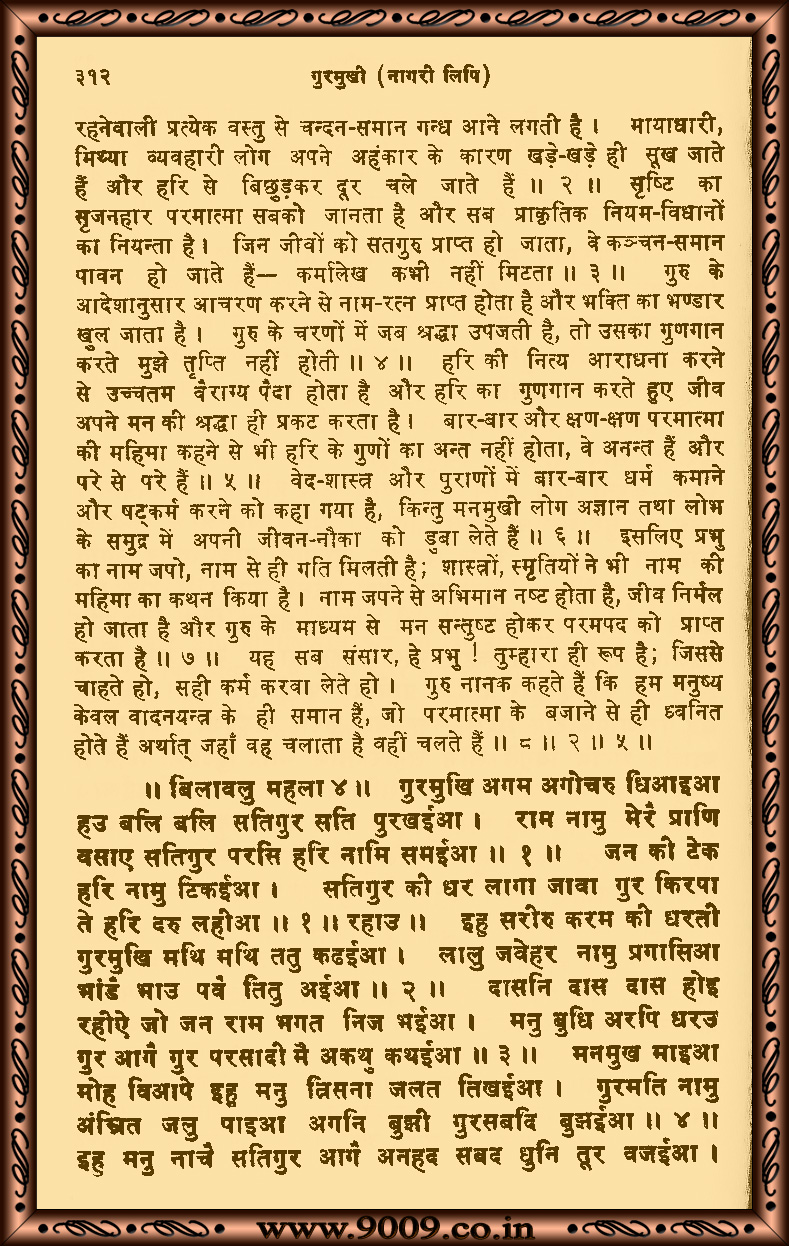 ३१२ गुरमुखी (नागरी लिपि)
रहनेवाली प्रत्येक वस्तु से चन्दन-समान गन्ध आने लगती है । मायाधारी,
मिथ्या व्यवहारी लोग अपने अहंकार के कारण खड़े-खड़े ही सूख जाते
हैं और हरि से बिछुड़कर दूर चले जाते हैं ॥ २ ॥ सृष्टि का
सृजनहार परमात्मा सबको जानता है और सब प्राकृतिक नियम-विधानों
का नियन्ता है । जिन जीवों को सतगुरु प्राप्त हो जाता, वे कञ्चन-समान
पावन हो जाते हैं— कर्मालेख कभी नहीं मिटता ॥ ३ ॥ गुरु के
आदेशानुसार आचरण करने से नाम-रत्न प्राप्त होता है और भक्ति का भण्डार
खुल जाता है । गुरु के चरणों में जब श्रद्धा उपजती है, तो उसका गुणगान
करते मुझे तृप्ति नहीं होती ॥ ४ ॥ हरि की नित्य आराधना करने
से उच्चतम वैराग्य पैदा होता है और हरि का गुणगान करते हुए जीव
अपने मन की श्रद्धा ही प्रकट करता है । बार-बार और क्षण-क्षण परमात्मा
की महिमा कहने से भी हरि के गुणों का अन्त नहीं होता, वे अनन्त हैं और
परे से परे हैं ॥ ५ ॥ वेद-शास्त्र और पुराणों में बार-बार धर्म कमाने
और षट्कर्म करने को कहा गया है, किन्तु मनमुखी लोग अज्ञान तथा लोभ
के समुद्र में अपनी जीवन-नौका को डुबा लेते हैं ॥ ६ ॥ इसलिए प्रभु
का नाम जपो, नाम से ही गति मिलती है; शास्त्रों, स्मृतियों ने भी नाम की
महिमा का कथन किया है । नाम जपने से अभिमान नष्ट होता है, जीव निर्मल
हो जाता है और गुरु के माध्यम से मन सन्तुष्ट होकर परमपद को प्राप्त
करता है ॥ ७ ॥ यह सब संसार, हे प्रभु ! तुम्हारा ही रूप है; जिससे
चाहते हो, सही कर्म करवा लेते हो । गुरु नानक कहते हैं कि हम मनुष्य
केवल वादनयन्त्र के ही समान हैं, जो परमात्मा के बजाने से ही ध्वनित
होते हैं अर्थात् जहाँ वह चलाता है वहीं चलते हैं ॥ ८ ॥ २ ॥ ५ ॥
॥ बिलावलु महला ४ ॥ गुरमुखि अगम अगोचरु धिआइआ
हउ बलि बलि सतिगुर सति पुरखईआ । राम नामु मेरै प्राणि
वसाए सतिगुर परसि हरि नामि समईआ ॥ १ ॥ जन की टेक
हरि नामु टिकईआ । सतिगुर की धर लागा जावा गुर किरपा
ते हरि दरु लहीआ ॥ १ ॥ रहाउ ॥ इहु सरीरु करम की धरती
गुरमुखि मथि मथि ततु कढईआ । लालु जवेहर नामु प्रगासिआ
भांडै भाउ पवै तितु अईआ ॥ २ ॥ दासनि दास दास होइ
रहीऐ जो जन राम भगत निज भईआ । मनु बुधि अरपि धरउ
गुर आगै गुर परसादी मै अकथु कथईआ ॥ ३ ॥ मनमुख माइआ
मोह विआपे इहु मनु त्रिसना जलत तिखईआ । गुरमति नामु
अंम्रित जलु पाइआ अगनि बुझी गुरसबदि बुझईआ ॥ ४ ॥
इहु मनु नाचै सतिगुर आगै अनहद सबद धुनि तूर वजईआ ।
www.9009.co.in